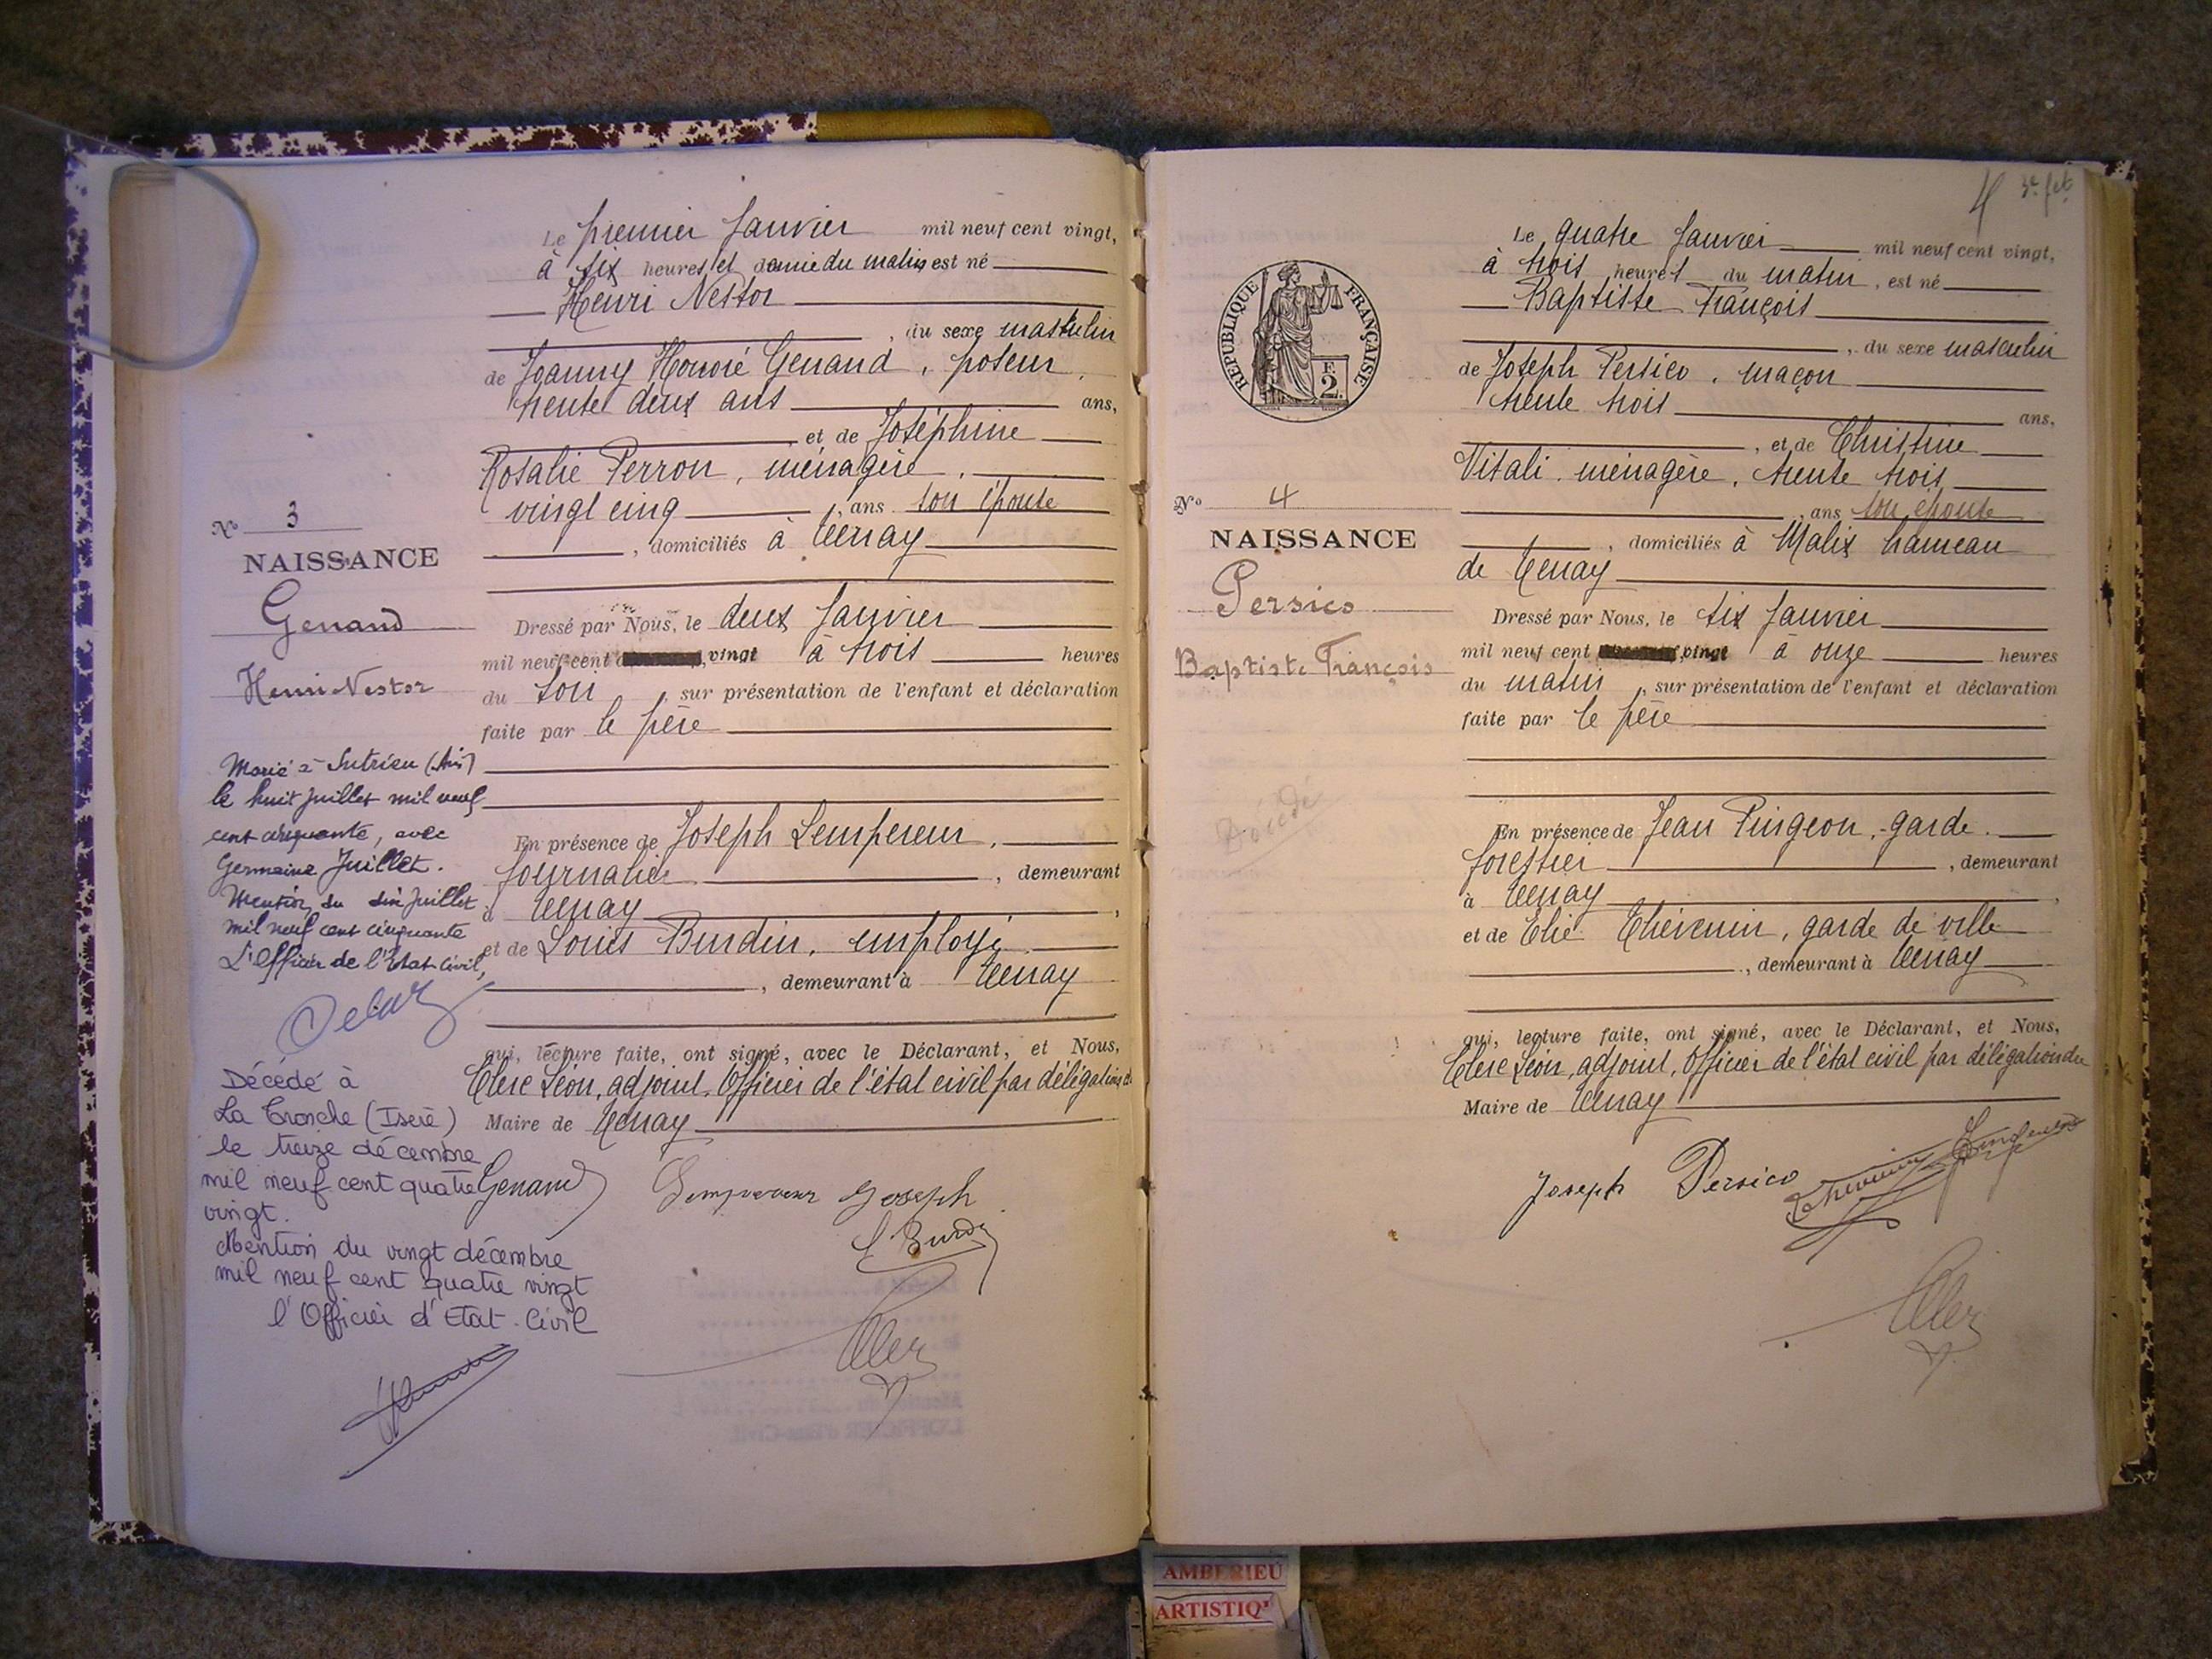 Le premier Janvier mil neuf cent vingt,
à six heures et demie du matin est né
Henri Nestor
, du sexe masculin
de Joanny Honoré Genand, poseur,
trente deux ans ans,
et de Joséphine
Rosalie Perron, ménagère,
vingt cinq, ans son épouse
, domiciliés à Tenay
Nº 3
NAISSANCE
Genand
Henri Nestor
Dressé par Nous, le deux Janvier
mil neuf cent vingt à trois heures
du soir, sur présentation de l'enfant et déclaration
faite par le père
Marié à Sutrieu (Ain)
le huit juillet mil neuf
cent cinquante, avec
Germaine Juillet.
Mention du dix juillet
mil neuf cent cinquante
L'Officier de l'Etat-Civil,
En présence de Joseph Lempereur,
journalier, demeurant
à Tenay,
et de Louis Burdin, employé
, demeurant à Tenay
qui, lecture faite, ont signé, avec le Déclarant, et Nous,
Clerc Léon, adjoint, Officier de l'état civil par délégation du
Maire de Tenay
Décédé à
La Tronche (Isère)
le treize décembre
mil neuf cent quatre
vingt.
Mention du vingt décembre
mil neuf cent quatre vingt
l'Officier d'Etat-Civil
Genand
Lempereur Joseph
L Burdin
Clerc
4
3e fet
Le quatre Janvier mil neuf cent vingt,
à trois heures du matin, est né
Baptiste François
, du sexe masculin
de Joseph Persico, maçon
trente trois ans,
, et de Christine
Vitali, ménagère, trente trois
, ans son épouse
, domiciliés à Malix hameau
de Tenay
REPUBLIQUE FRANÇAISE
F.
2.
Nº 4
NAISSANCE
Persico
Baptiste François
Décédé
Dressé par Nous, le six Janvier
mil neuf cent vingt à onze heures
du matin, sur présentation de l'enfant et déclaration
faite par le père
En présence de Jean Pingeon, garde
forestier, demeurant
à Tenay,
et de Elie Thévenin, garde de ville
, demeurant à Tenay
qui, lecture faite, ont signé, avec le Déclarant, et Nous,
Clerc Léon, adjoint, Officier de l'état civil par délégation du
Maire de Tenay
Joseph Persico
Thevenin
Clerc
AMBERIEU
ARTISTIQ